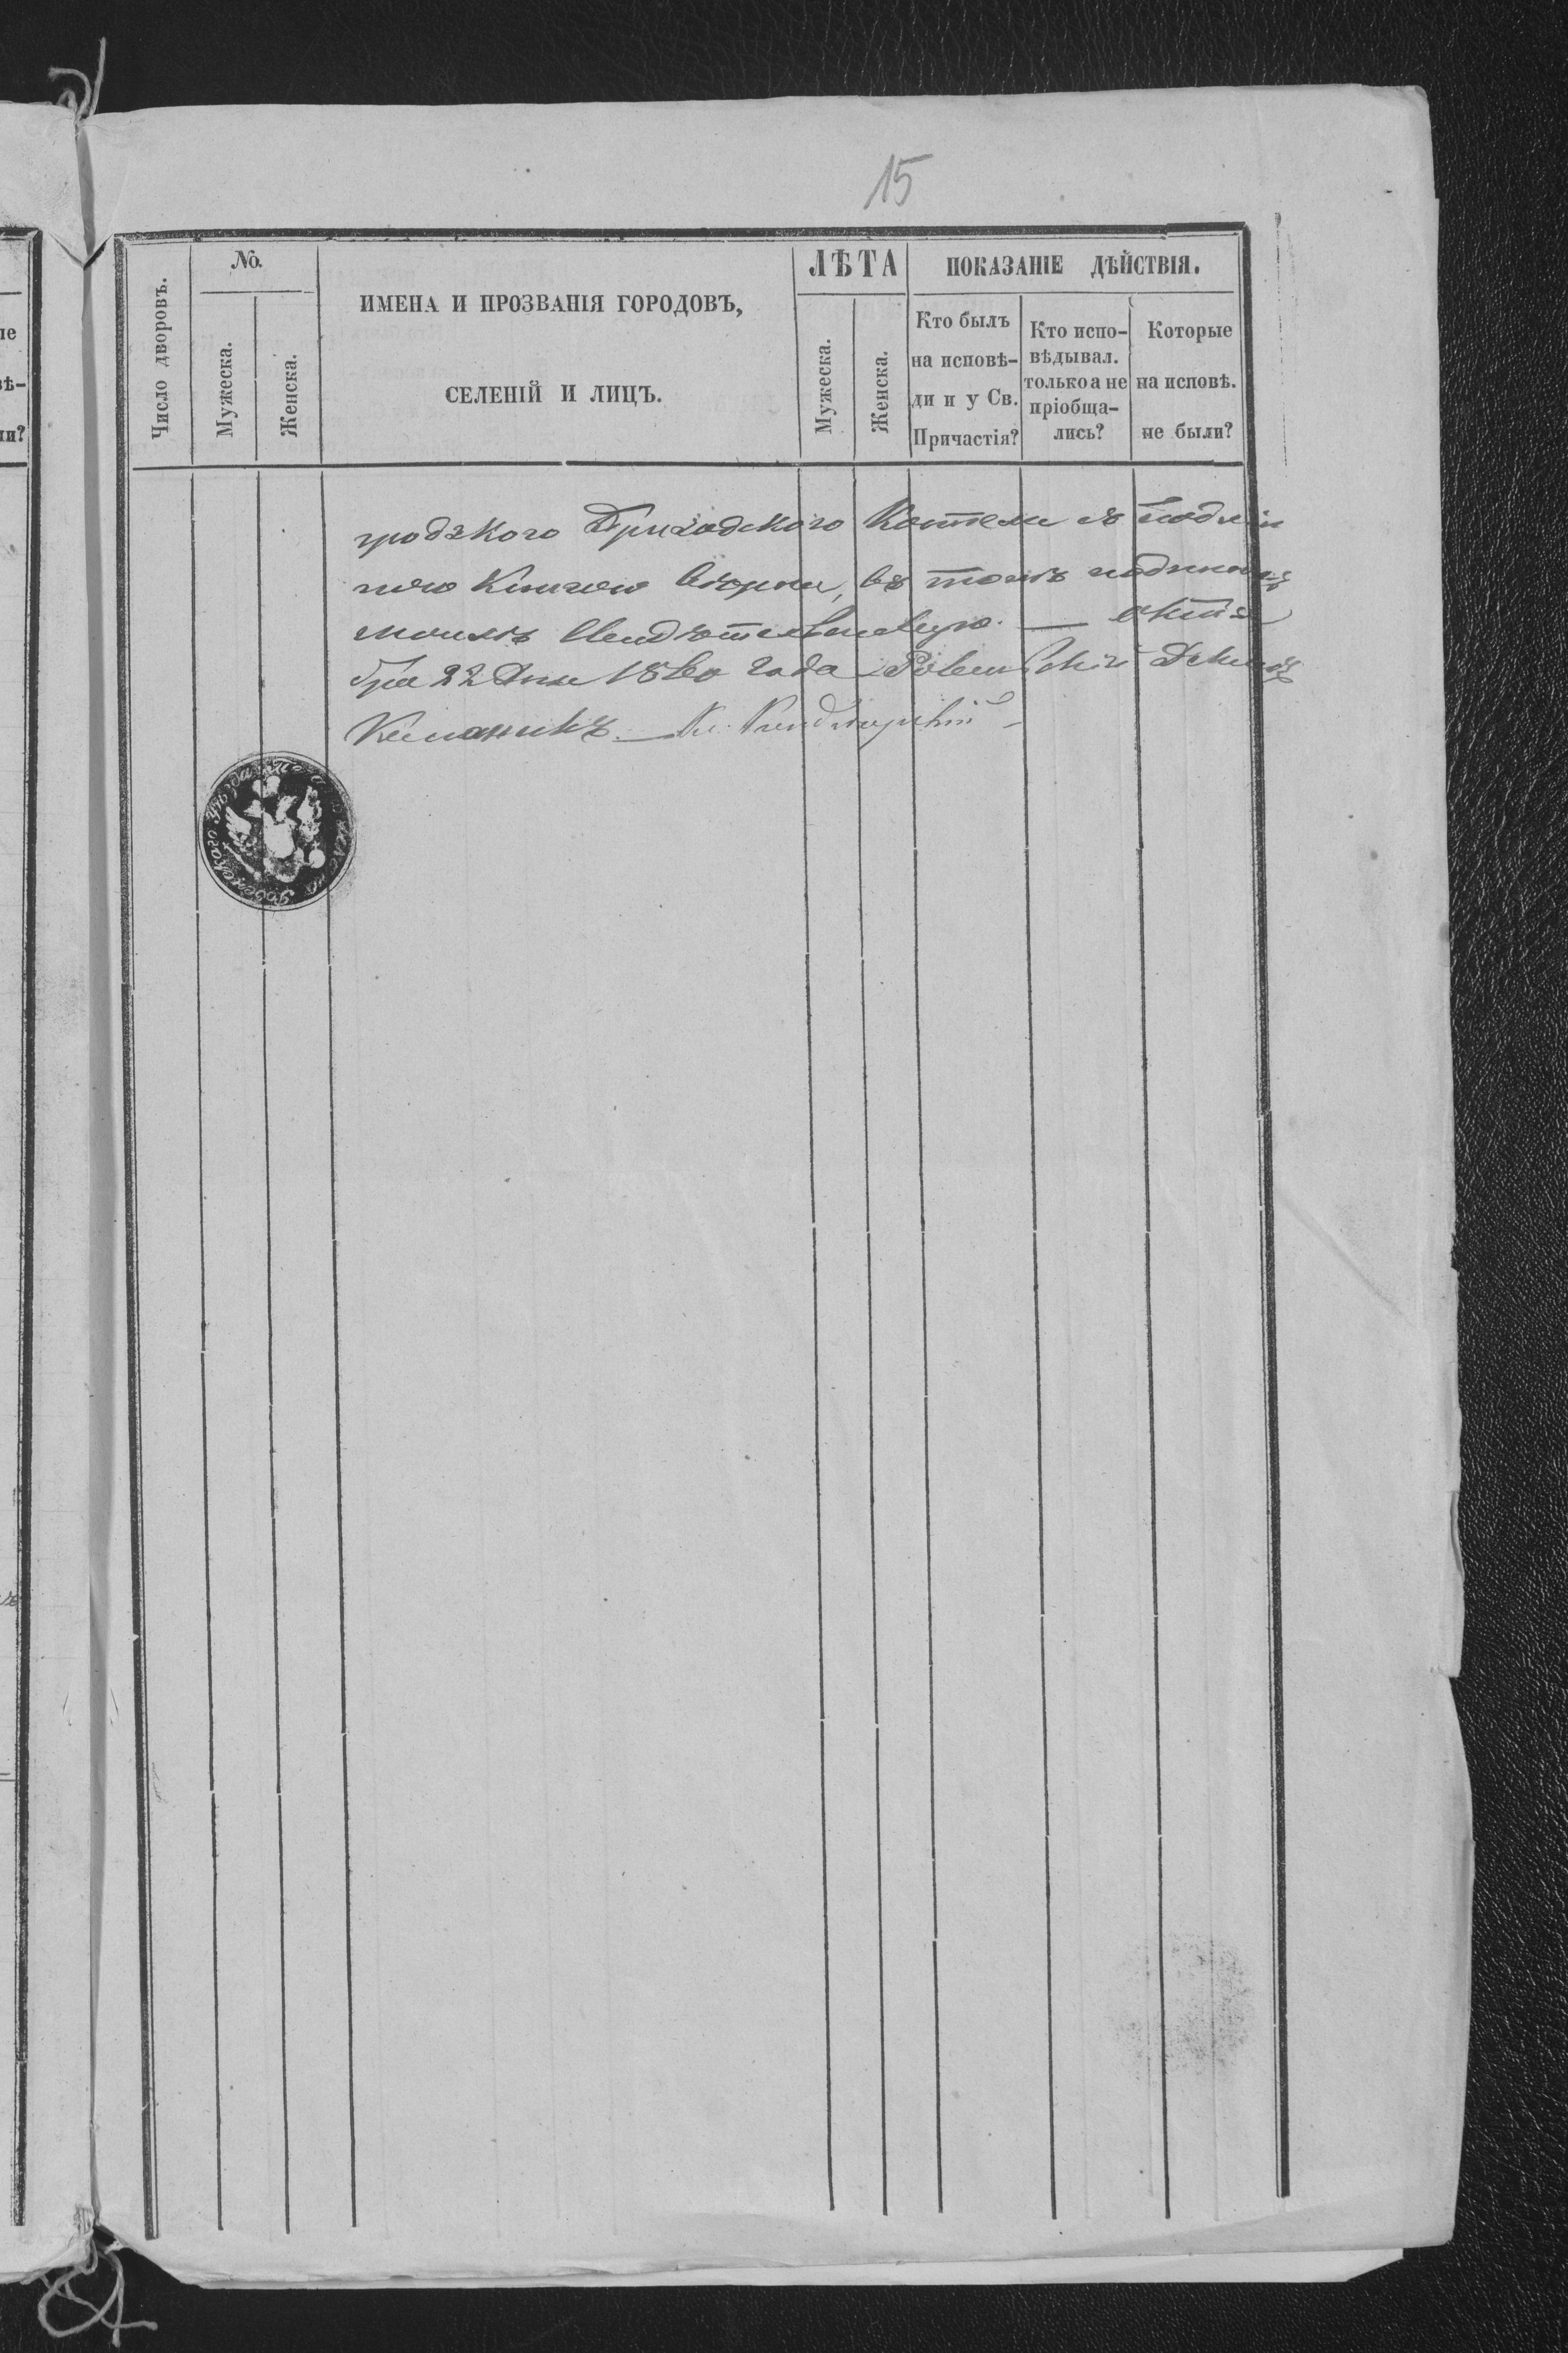 15
Число дворовъ.
№.
Мужеска.
Женска.
ИМЕНА И ПРОЗВАНІЯ ГОРОДОВЪ,
СЕЛЕНІЙ И ЛИЦЪ.
ЛѢТА
Мужеска.
Женска.
ПОКАЗАНІЕ ДѢЙСТВІЯ.
Кто былъ
на исповѣ-
ди и у Св.
Причастія?
Кто испо-
вѣдывал.
только а не
пріобща-
лись?
Которые
на исповѣ.
не были?
родзкого Приходского Костела съ подлин
ною Книгою вѣрна, въ томъ подписомъ
моимъ Свидѣтельствую. — Октя
бря 22 Дня 1860 года Ровенскій Декан
Каноникъ